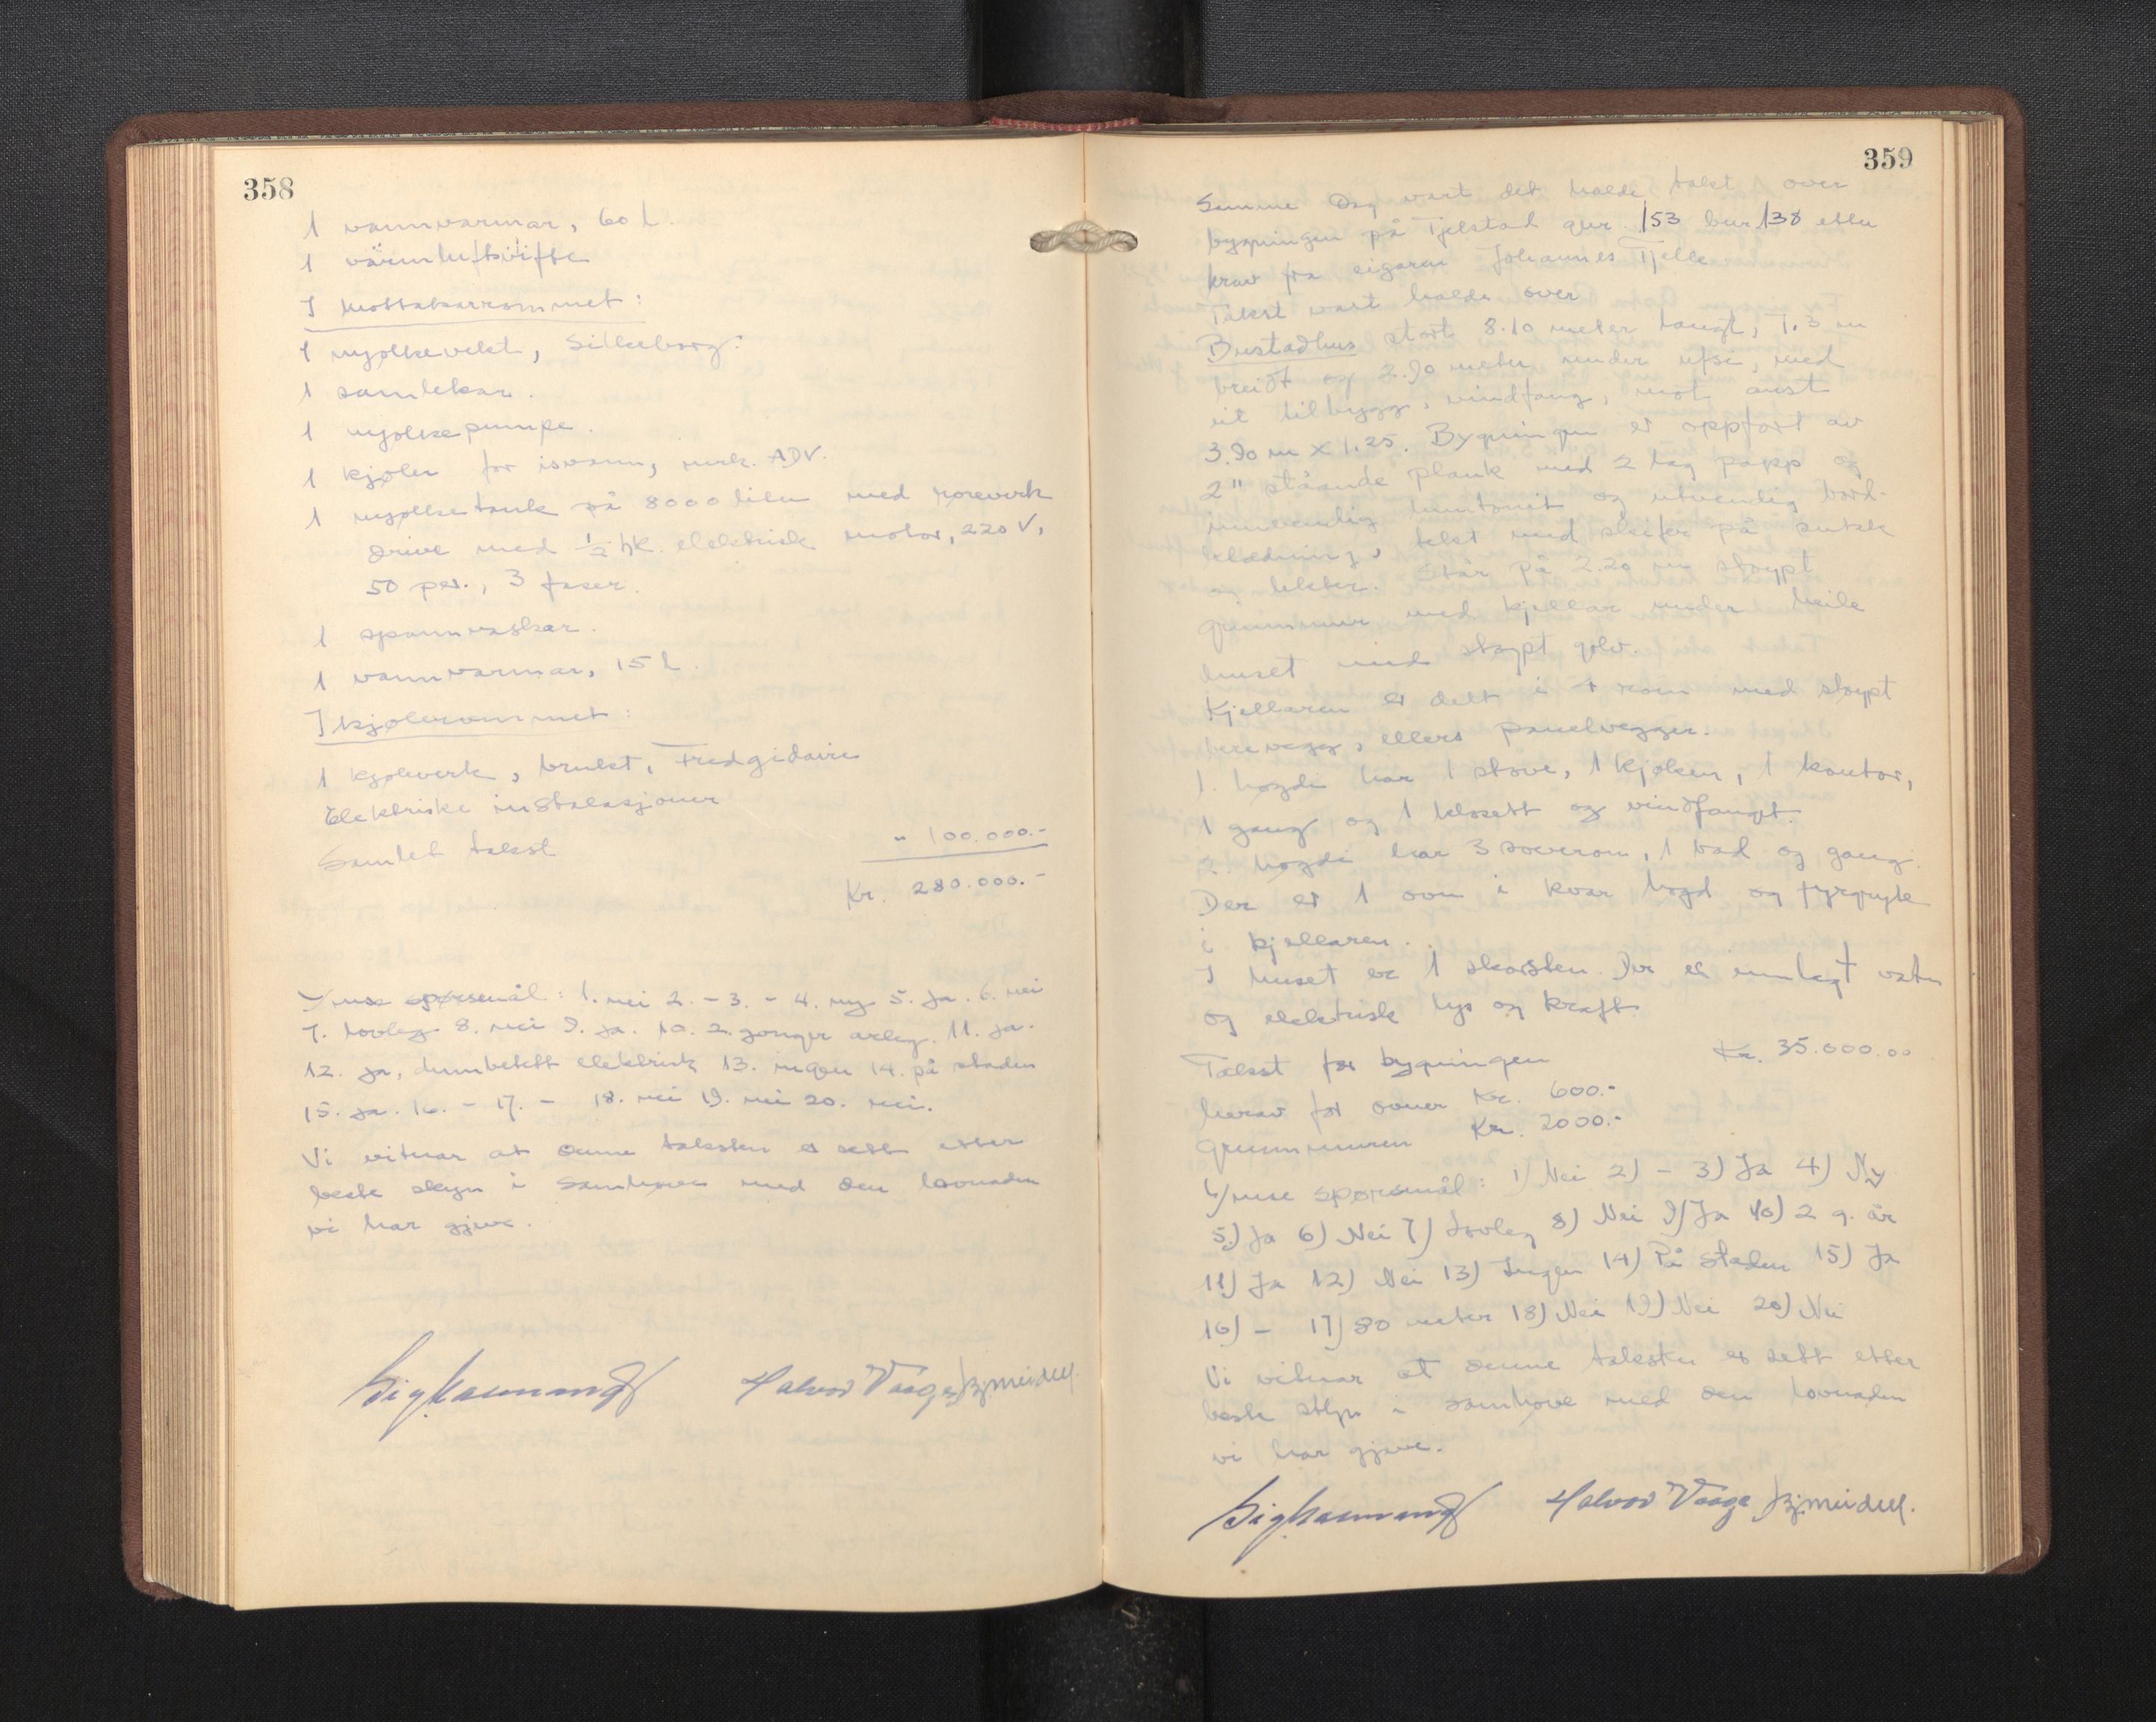 358
1 vannvarmar, 60 L.
1 varmluftsvifte
I mottakarrommet:
1 mjølkevekt, Silkeborg.
1 samlekar.
1 mjølkepumpe.
1 kjøler for isvann, merk. ADV.
1 mjølketank på 8000 liter med røreverk
drive med 1/2 hk. elektrisk motor, 220 V,
50 per., 3 faser.
1 spannvaskar.
1 vannvarmar, 15 L.
I kjølerommet:
1 kjøleverk, brukt, Fredgidaire
Elektriske instalasjoner
" 100.000.-
Samlet takst
Kr. 280.000.-
Ymse spørsmål: 1. nei 2. - 3. - 4. ny 5. Ja. 6. nei
7. lovleg 8. nei 9. Ja. 10. 2 gonger årleg. 11. Ja.
12. Ja, elektrisk 13. ingen 14. på staden
15. Ja. 16. - 17. - 18. nei 19. nei 20. nei.
Vi vitnar at denne taksten er sett etter
beste skyn i samhøve med den lovnaden
vi har gjeve.
Halvor Vaage
359
Samme dag vart det halde takst over
bygningen på Tjelstad gnr. 153 bnr 138 etter
krav fra eigaren Johannes Tjelle
Takst vart halde over
Bustadhus stort 8.10 meter langt, 7.3 m
breidt og 2.90 meter under ufsi, med
eit tilbygg, vindfang, mot aust
3.90 m x 1.25. Bygningen er oppført av
2" ståande plank med 2 lag papp og
innvendig huntonit og utvendig bord-
klædning, tekt med skifer på sutak
og lekter. Står på 2.20 m støypt
grunnmur med kjellar under heile
huset med støypt golv.
Kjellaren er delt i 4 rom med støypt
berevegg, ellers panelvegger.
1. høgde har 1 stove, 1 kjøken, 1 kontor,
1 gang og 1 klosett og vindfanget.
2. høgde har 3 soverom, 1 bad og gang.
Der er 1 ovn i kvar høgd og fyrgryte
i kjellaren.
I huset er 1 skorsten. Der er innlagt vatn
og elektrisk lys og kraft.
Takst for bygningen Kr. 35.000.00
herav for ovner Kr. 600.-
grunnmuren Kr. 2000.-
Ymse spørsmål: 1) Nei 2) - 3) Ja 4) Ny
5) Ja 6) Nei 7) Lovleg 8) Nei 9) Ja 10) 2 g. år
11) Ja 12) Nei 13) Ingen 14) På staden 15) Ja
16) - 17) 80 meter 18) Nei 19) Nei 20) Nei
Vi vitnar at denne taksten er sett etter
beste skyn i samhøve med den lovnaden
vi har gjeve.
Halvor Vaage